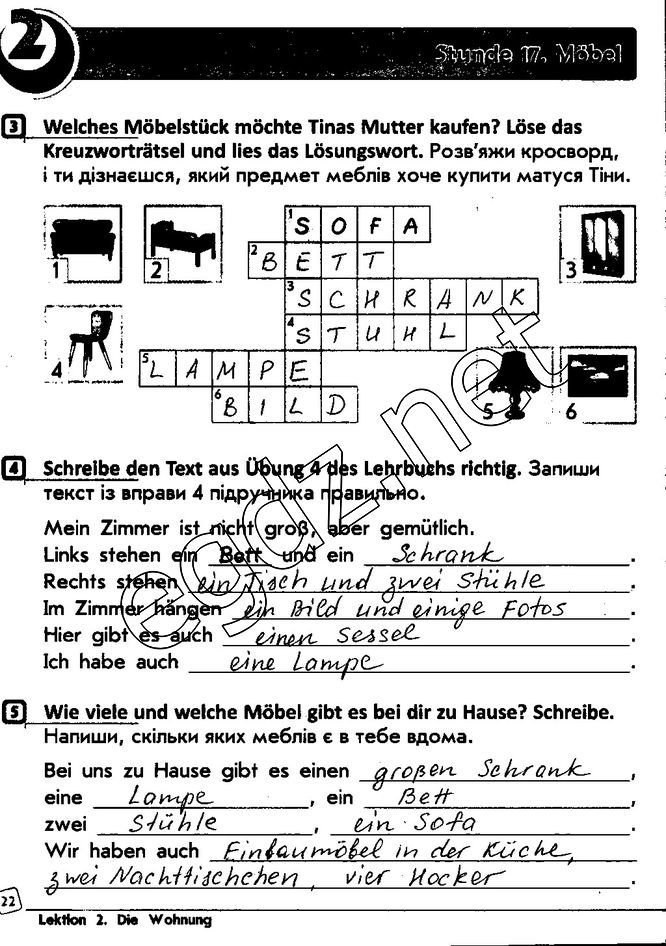 2
Stunde 17. Möbel
3 Welches Möbelstück möchte Tinas Mutter kaufen? Löse das
Kreuzworträtsel und lies das Lösungswort. Розв'яжи кросворд,
і ти дізнаєшся, який предмет меблів хоче купити матуся Тіни.
1 SOFA
2 BETT
3 SCHRANK
4 STUHL
5 LAMPE
6 BILD
1 2 3
4 5 6
egdz.net
4 Schreibe den Text aus Übung 4 des Lehrbuchs richtig. Запиши
текст із вправи 4 підручника правильно.
Mein Zimmer ist nicht groß, aber gemütlich.
Links stehen ein Bett und ein Schrank.
Rechts stehen ein Tisch und zwei Stühle.
Im Zimmer hängen ein Bild und einige Fotos.
Hier gibt es auch einen Sessel.
Ich habe auch eine Lampe.
5 Wie viele und welche Möbel gibt es bei dir zu Hause? Schreibe.
Напиши, скільки яких меблів є в тебе вдома.
Bei uns zu Hause gibt es einen großen Schrank,
eine Lampe, ein Bett,
zwei Stühle, ein Sofa.
Wir haben auch Einbaumöbel in der Küche,
zwei Nachttischchen, vier Hocker.
22
Lektion 2. Die Wohnung